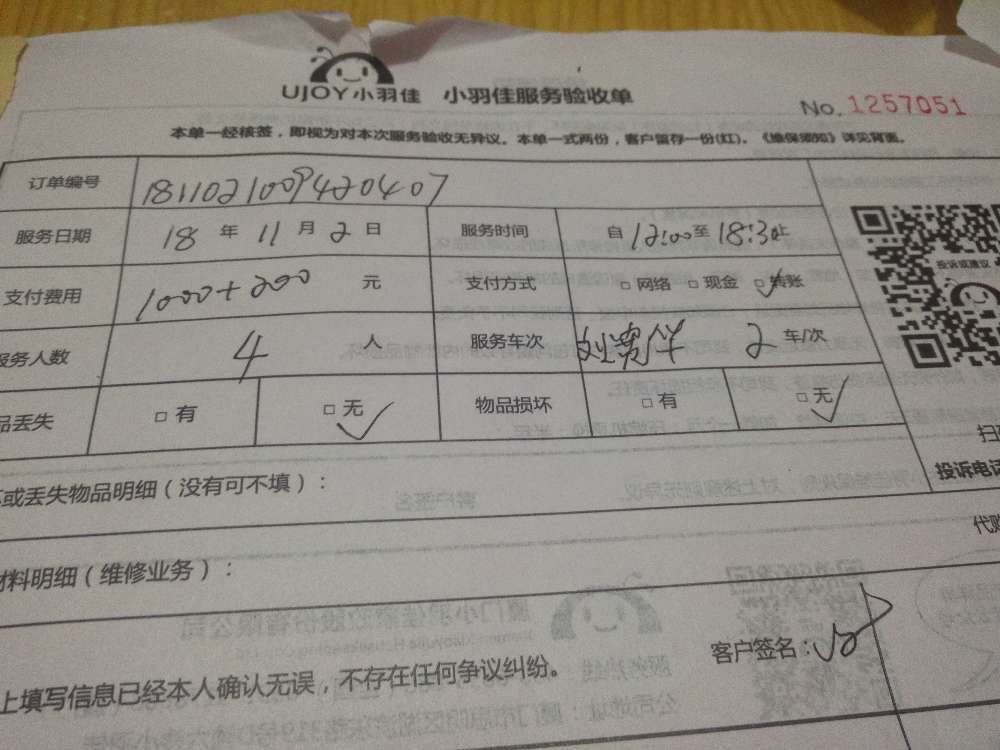 UJOY小羽佳 小羽佳服务验收单
No. 1257051
本单一经核签，即视为对本次服务验收无异议。本单一式两份，客户留存一份(红)。《维保须知》详见背面。
订单编号 181102100942040407
服务日期 18 年 11 月 2 日 服务时间 自 12:00 至 18:30 止
支付费用 1000+200 元 支付方式 □ 网络 □ 现金 □ 转账
服务人数 4 人 服务车次 2 车/次
品丢失 □ 有 □ 无 物品损坏 □ 有 □ 无
投诉或建议
扫
投诉电话
坏或丢失物品明细（没有可不填）：
代购
材料明细（维修业务）：
上填写信息已经本人确认无误，不存在任何争议纠纷。 客户签名：